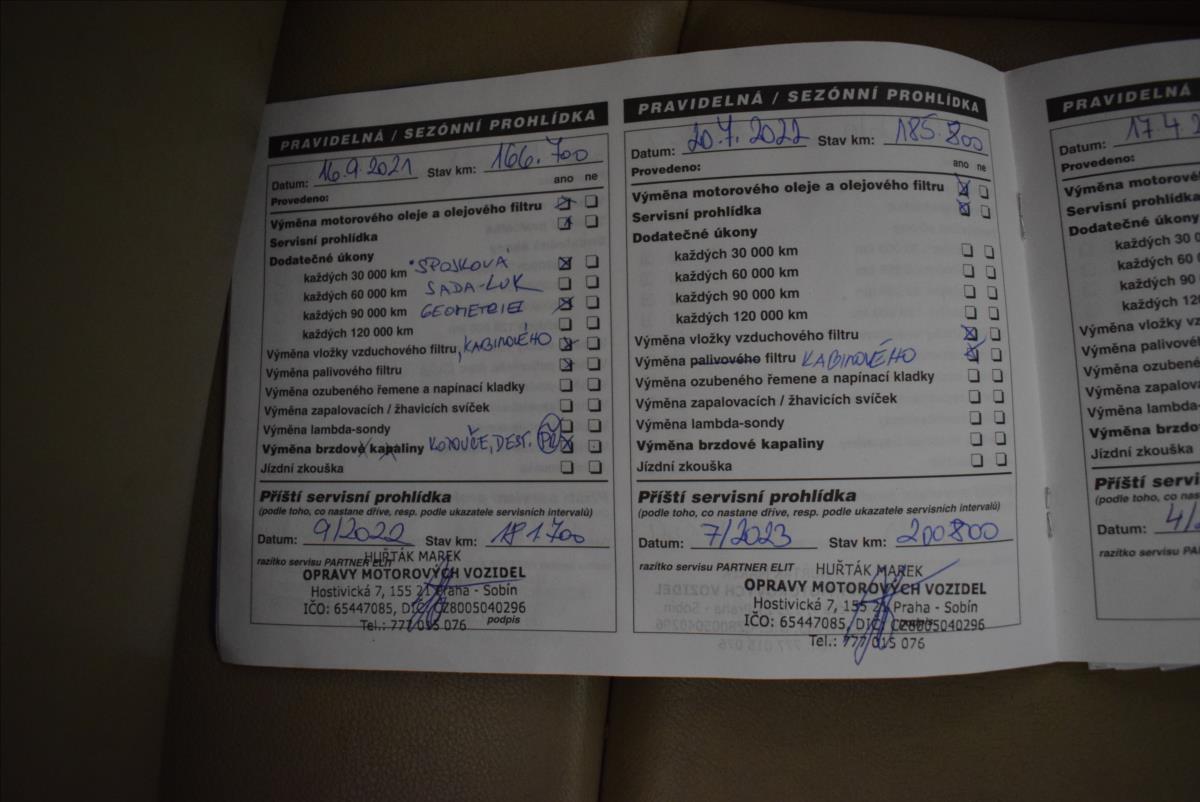 PRAVIDELNÁ / SEZÓNNÍ PROHLÍDKA
Datum: 16.9.2021 Stav km: 166.700
Provedeno: ano ne
Výměna motorového oleje a olejového filtru
Servisní prohlídka
Dodatečné úkony
každých 30 000 km SPOJKOVÁ
každých 60 000 km SADA-LUK
každých 90 000 km GEOMETRIE
každých 120 000 km
Výměna vložky vzduchového filtru, KABINOVÉHO
Výměna palivového filtru
Výměna ozubeného řemene a napínací kladky
Výměna zapalovacích / žhavicích svíček
Výměna lambda-sondy
Výměna brzdové kapaliny KOTOUČE, DEST. PŘ
Jízdní zkouška
Příští servisní prohlídka
(podle toho, co nastane dříve, resp. podle ukazatele servisních intervalů)
Datum: 9/2022 Stav km: 181700
razítko servisu PARTNER ELIT
HUŘTÁK MAREK
OPRAVY MOTOROVÝCH VOZIDEL
Hostivická 7, 155 21 Praha - Sobín
IČO: 65447085, DIČ: CZ8005040296
podpis
Tel.: 777 015 076
PRAVIDELNÁ / SEZÓNNÍ PROHLÍDKA
Datum: 20.7.2022 Stav km: 185.800
Provedeno: ano ne
Výměna motorového oleje a olejového filtru
Servisní prohlídka
Dodatečné úkony
každých 30 000 km
každých 60 000 km
každých 90 000 km
každých 120 000 km
Výměna vložky vzduchového filtru
Výměna palivového filtru KABINOVÉHO
Výměna ozubeného řemene a napínací kladky
Výměna zapalovacích / žhavicích svíček
Výměna lambda-sondy
Výměna brzdové kapaliny
Jízdní zkouška
Příští servisní prohlídka
(podle toho, co nastane dříve, resp. podle ukazatele servisních intervalů)
Datum: 7/2023 Stav km: 200800
razítko servisu PARTNER ELIT
HUŘTÁK MAREK
OPRAVY MOTOROVÝCH VOZIDEL
Hostivická 7, 155 21 Praha - Sobín
IČO: 65447085, DIČ: CZ8005040296
podpis
Tel.: 777 015 076
PRAVIDELNÁ / SEZÓNN
Datum: 17.4.2
Provedeno:
Výměna motorovéh
Servisní prohlídka
Dodatečné úkony
každých 30 0
každých 60
každých 90
každých 120
Výměna vložky v
Výměna palivové
Výměna ozubené
Výměna zapalova
Výměna lambda-
Výměna brzdov
Jízdní zkouška
Příští servisní
(podle toho, co nastane
Datum: 4/
razítko servisu PA